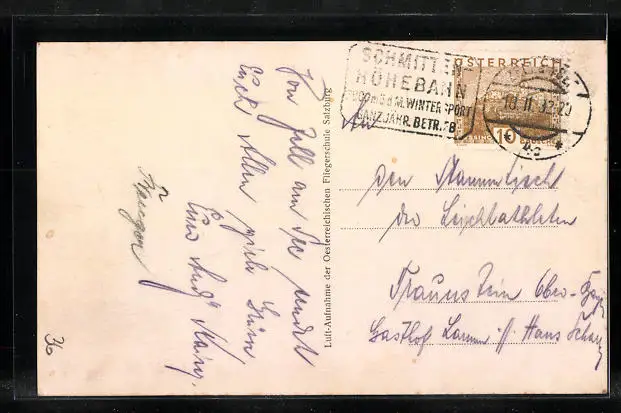 SCHMITTEN
HÖHEBAHN
2000 m ü. d. M. WINTERSPORT
GANZJÄHR. BETRIEB
ÖSTERREICH
10
10 II 32
Von Zell am See sendet
Euch Allen viele Grüße
Euer
Luft-Aufnahme der Oesterreichischen Fliegerschule Salzburg
An
den Stammtisch
der Leichtathleten
Traunstein Ober-
Gasthof Hans
36